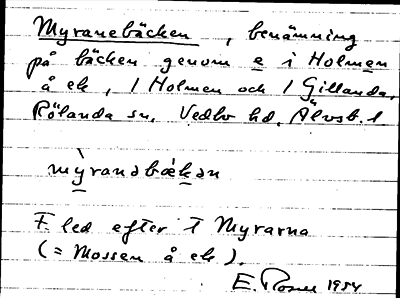 Myranebäcken, benämning
på bäcken genom e i Holmen
å ek, 1 Holmen och 1 Gillanda,
Rölanda sn. Vedbo hd. Älvsb. l
mỳranəbækən
F. led efter † Myrarna
(= Mossen å ek).
E. 1954